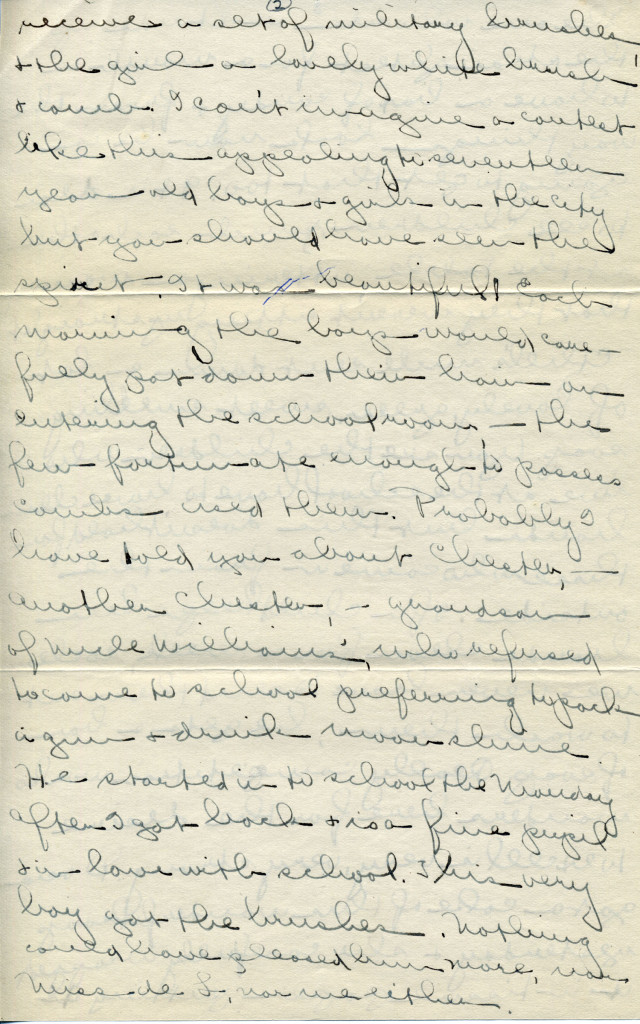 (2)
receive a set of military brushes,
& the girl a lovely white brush
& comb. I can't imagine a contest
like this appealing to seventeen
year old boys & girls in the city
but you should have seen the
spirit. It was beautiful! Each
morning the boys would care-
fully pat down their hair on
entering the schoolroom, – the
few fortunate enough to possess
combs used them. Probably I
have told you about Chester, –
another Chester, – grandson
of Uncle William's, who refused
to come to school preferring to pack
a gun & drink moonshine
He started in to school the Monday
after I got back & is a fine pupil
& in love with school. This very
boy got the brushes. Nothing
could have pleased him more, nor
Miss de L, nor me either.